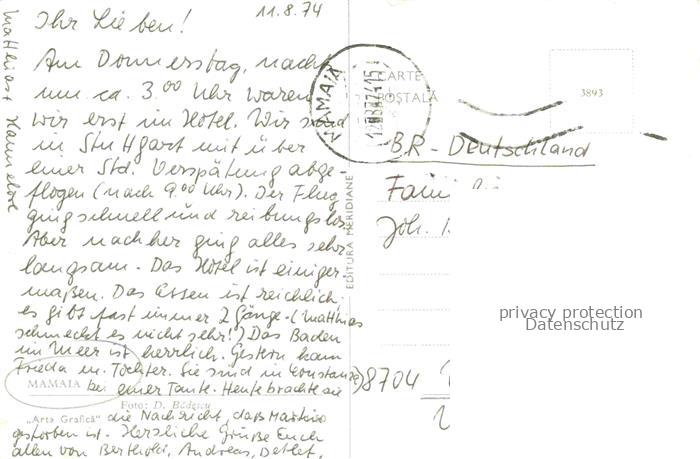 11.8.74
Ihr Lieben!
Am Donnerstag, nachts
um ca. 3.00 Uhr waren
wir erst im Hotel. Wir sind
in Stuttgart mit über
einer Std. Verspätung abge-
flogen (nach 9.00 Uhr). Der Flug
ging schnell und reibungslos.
Aber nachher ging alles sehr
langsam. Das Hotel ist einiger-
maßen. Das Essen ist reichlich.
es gibt fast immer 2 Gänge. (Matthias
schmeckt es nicht sehr!) Das Baden
im Meer ist herrlich. Gestern kam
Frieda m. Tochter. Sie sind in Constanza
bei einer Tante. Heute brachte sie
die Nachricht, dass
gestorben ist. Herzliche Grüße Euch
allen von Berthold, Andreas, Detlef,
Matthias + Hannelore
MAMAIA
Foto: D. Bădescu
„Arta Grafică"
EDITURA MERIDIANE
CARTE
POȘTALĂ
MAMAIA
3893
B.R-Deutschland
Fam
Joh.
8704
privacy protection
Datenschutz